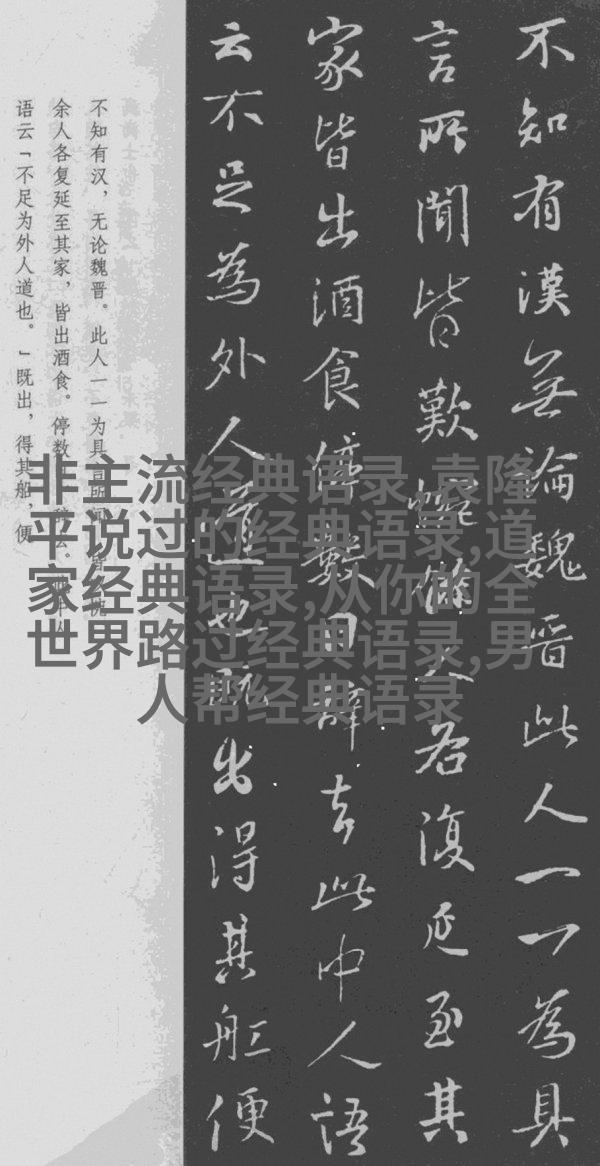 不知有漢無論魏晋此人一一為具
言所聞皆歎惋餘人各復延至其
家皆出酒食停數日辭去此中人語
云不足為外人道也既出得其船便
不知有汉，无论魏晋。此人一一为具
余人各复延至其家，皆出酒食。停数
语云「不足为外人道也。」既出，得其船，便
非主流经典语录,袁隆
平说过的经典语录,道
家经典语录,从你的全
世界路过经典语录,男
人帮经典语录